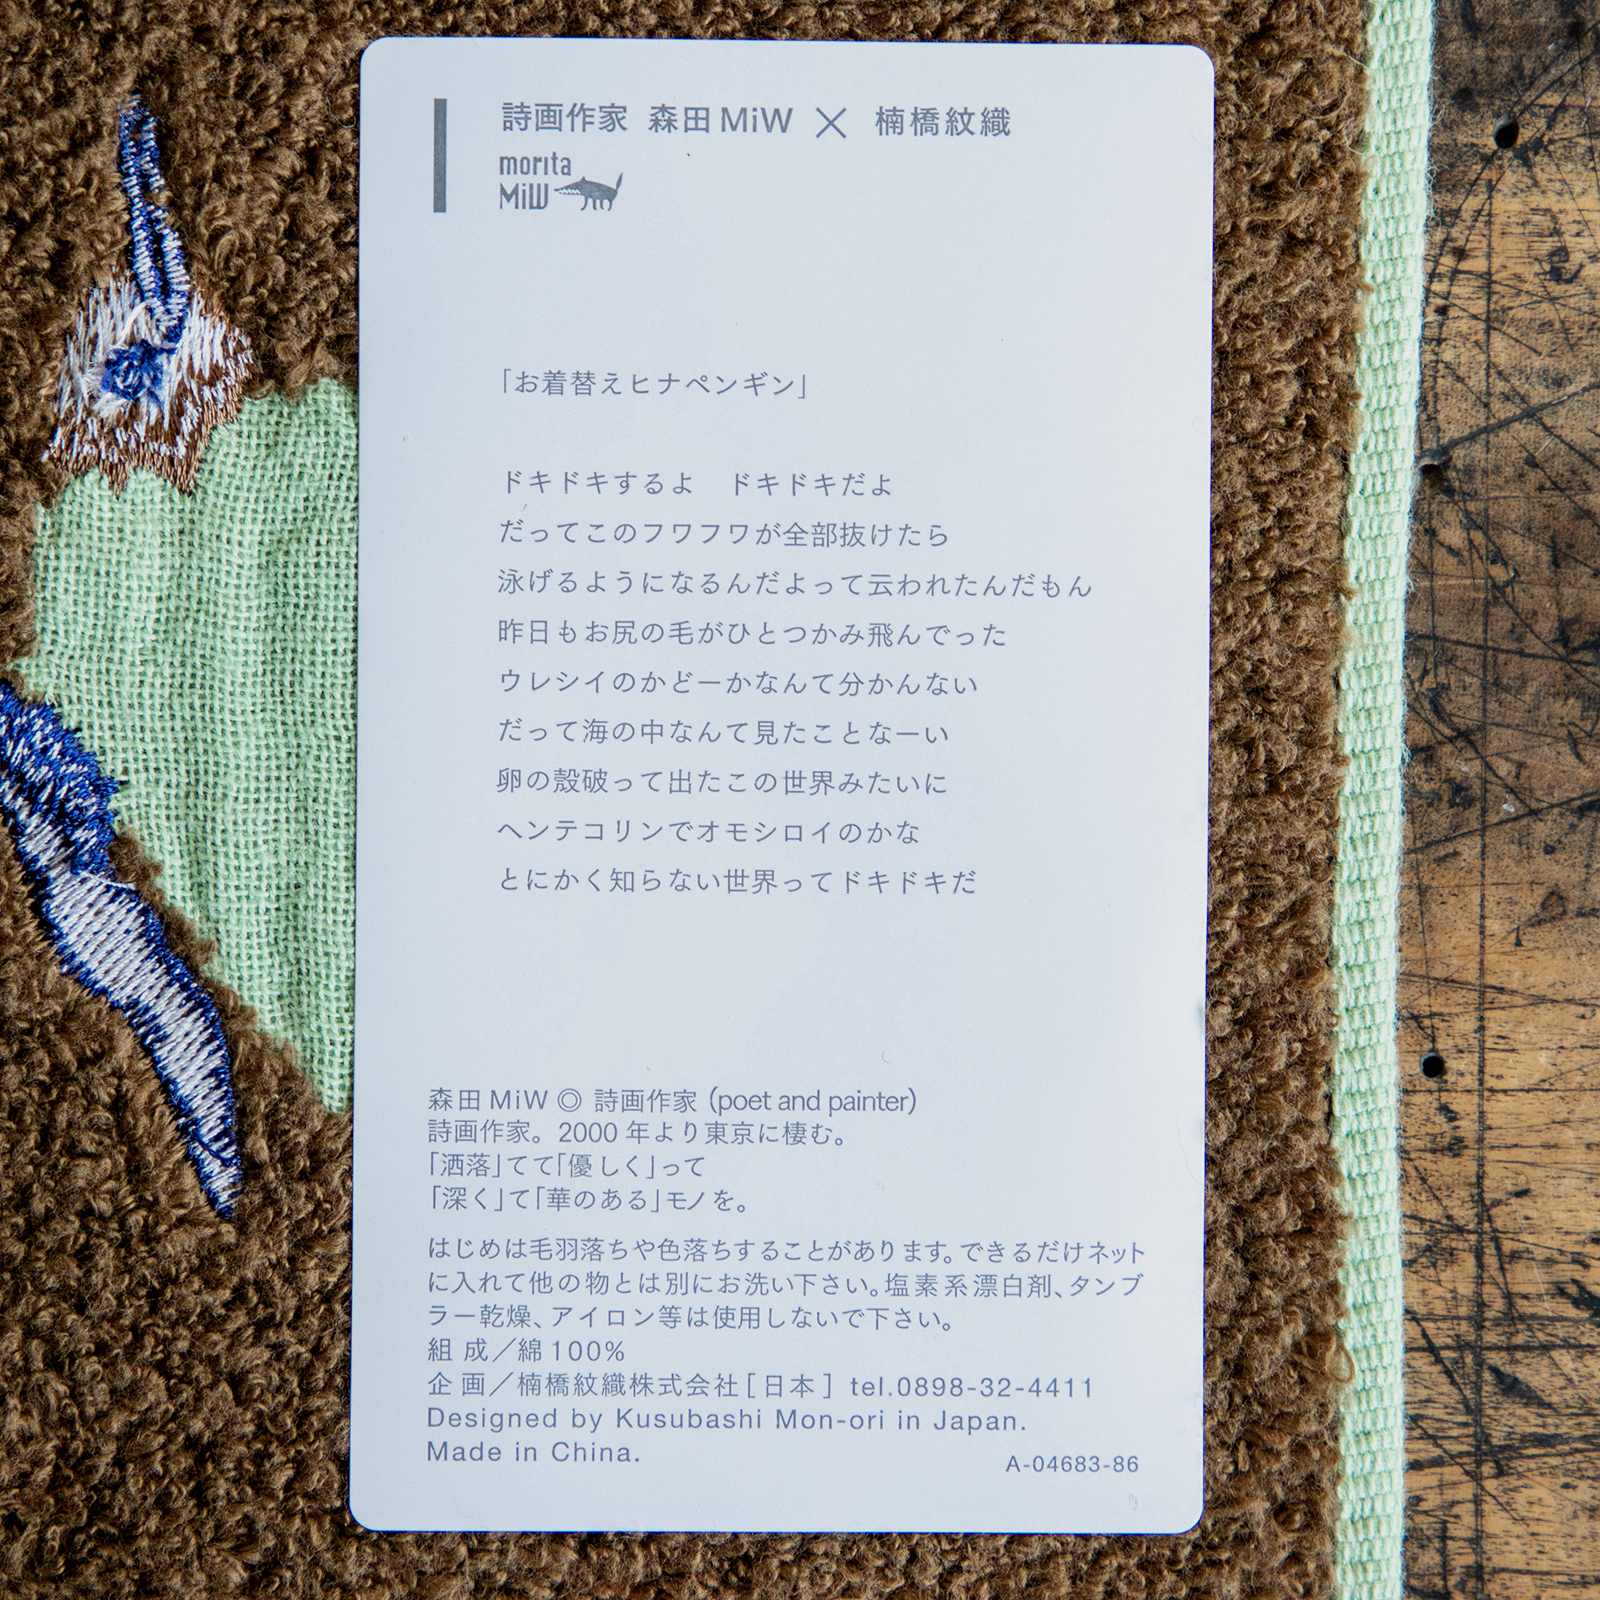 詩画作家 森田MiW × 楠橋紋織
morita
MiW
「お着替えヒナペンギン」
ドキドキするよ　ドキドキだよ
だってこのフワフワが全部抜けたら
泳げるようになるんだよって云われたんだもん
昨日もお尻の毛がひとつかみ飛んでった
ウレシイのかどーかなんて分かんない
だって海の中なんて見たことなーい
卵の殻破って出たこの世界みたいに
ヘンテコリンでオモシロイのかな
とにかく知らない世界ってドキドキだ
森田MiW ◎ 詩画作家 (poet and painter)
詩画作家。2000 年より東京に棲む。
「洒落」てて「優しく」って
「深く」て「華のある」モノを。
はじめは毛羽落ちや色落ちすることがあります。できるだけネット
に入れて他の物とは別にお洗い下さい。塩素系漂白剤、タンブ
ラー乾燥、アイロン等は使用しないで下さい。
組 成／綿100%
企 画／楠橋紋織株式会社[日本] tel.0898-32-4411
Designed by Kusubashi Mon-ori in Japan.
Made in China.
A-04683-86